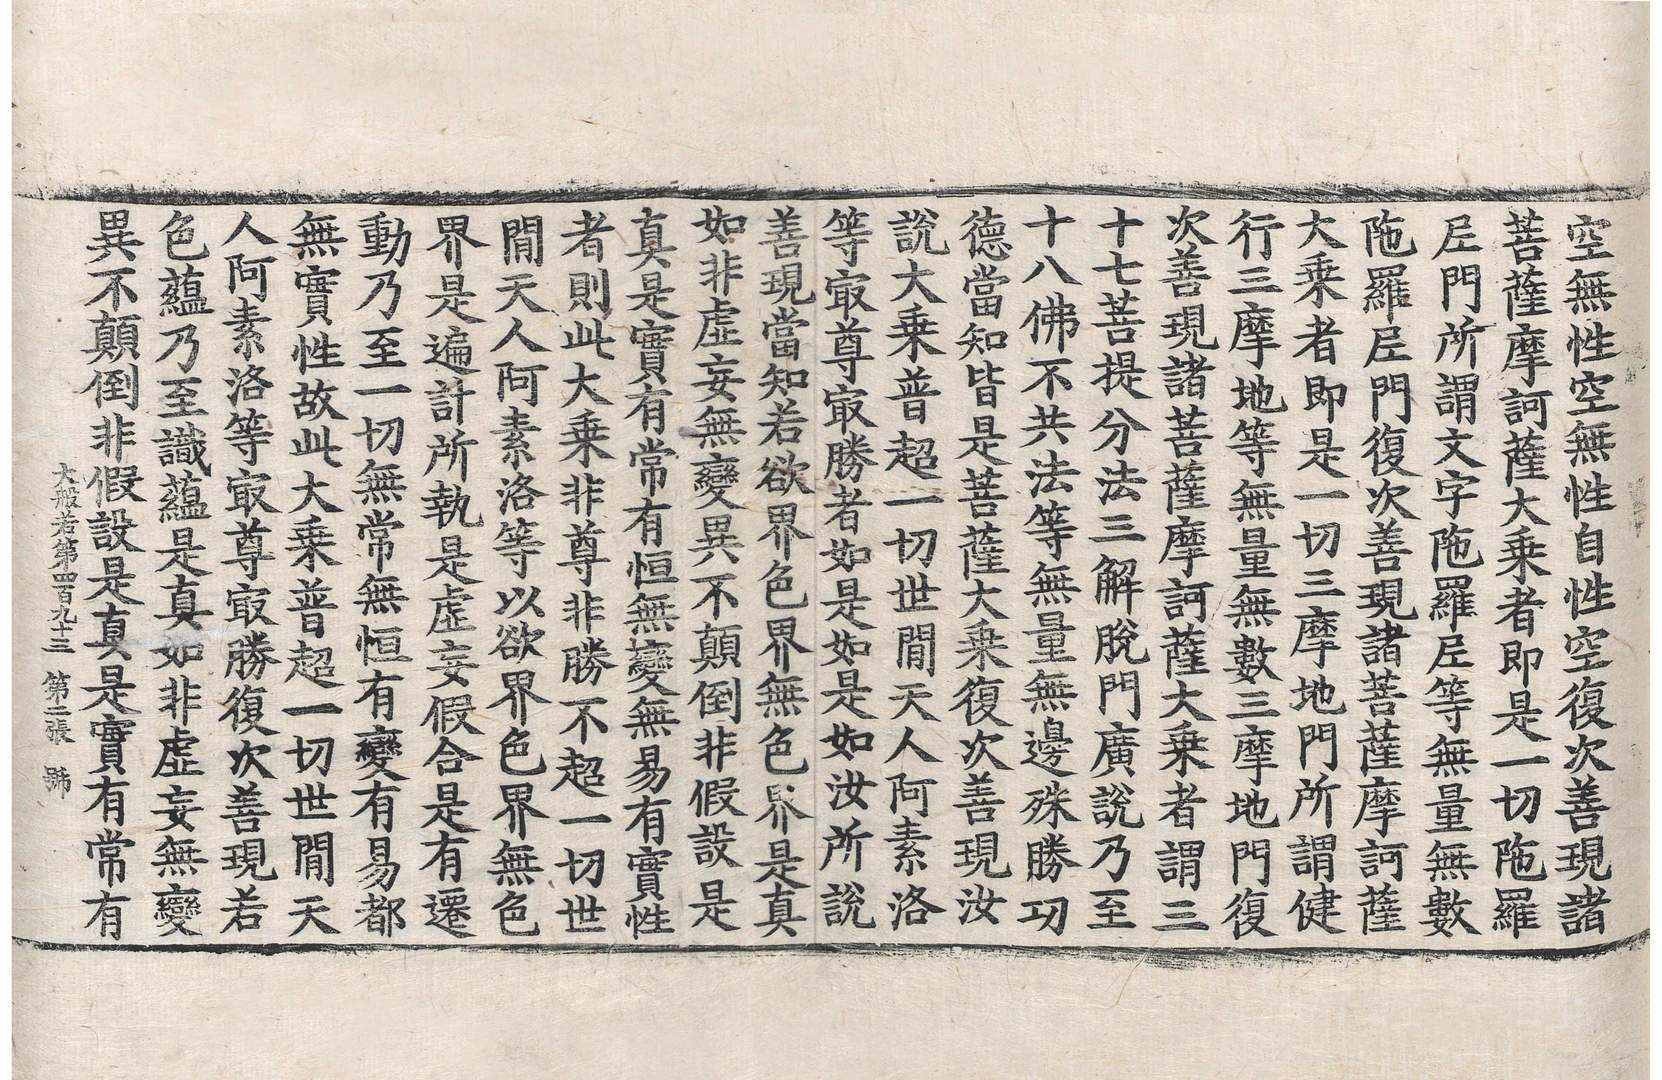 空無性空無性自性空復次善現諸
菩薩摩訶薩大乘者即是一切陁羅
尼門所謂文字陁羅尼等無量無數
陁羅尼門復次善現諸菩薩摩訶薩
大乘者即是一切三摩地門所謂健
行三摩地等無量無數三摩地門復
次善現諸菩薩摩訶薩大乘者謂三
十七菩提分法三解脫門廣說乃至
十八佛不共法等無量無邊殊勝功
德當知皆是菩薩大乘復次善現汝
說大乘普超一切世閒天人阿素洛
等㝡尊㝡勝者如是如是如汝所說
善現當知若欲界色界無色界是真
如非虛妄無變異不顛倒非假設是
真是實有常有恒無變無易有實性
者則此大乘非尊非勝不超一切世
閒天人阿素洛等以欲界色界無色
界是遍計所執是虛妄假合是有遷
動乃至一切無常無恒有變有易都
無實性故此大乘普超一切世閒天
人阿素洛等㝡尊㝡勝復次善現若
色蘊乃至識蘊是真如非虛妄無變
異不顛倒非假設是真是實有常有
大般若第四百九十三 第二張 號